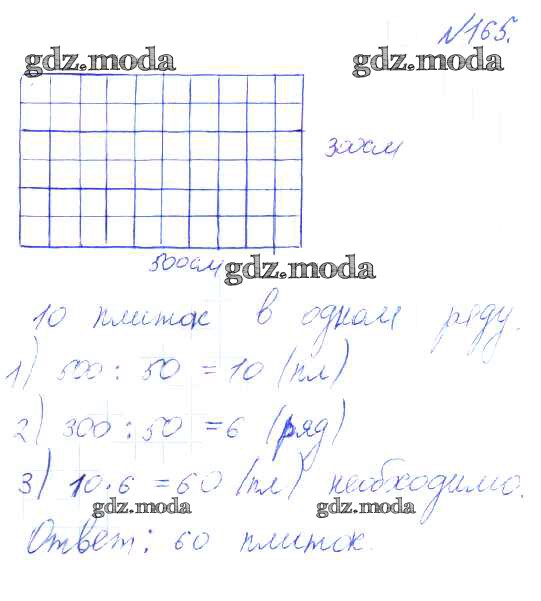 №165.
gdz.moda gdz.moda
300см
500см
gdz.moda
10 плиток в одном ряду.
1) 500 : 50 = 10 (пл)
2) 300 : 50 = 6 (ряд)
3) 10 · 6 = 60 (пл) необходимо.
gdz.moda gdz.moda
Ответ: 60 плиток.